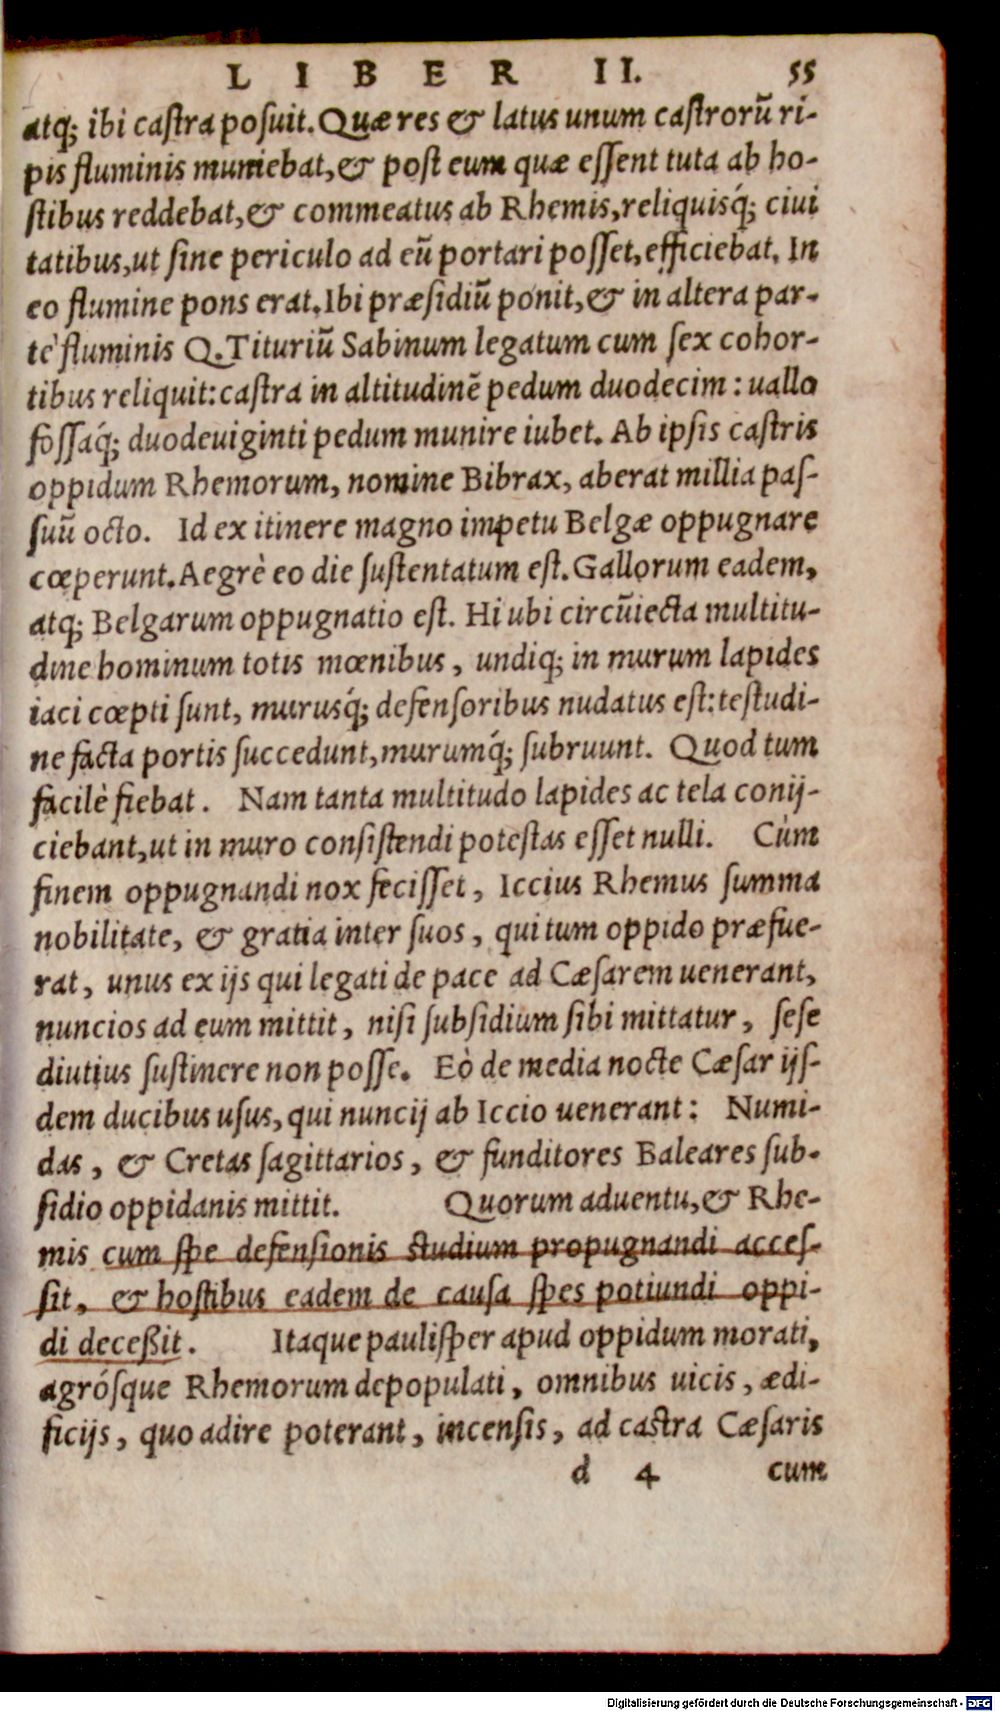 LIBER II. 55
atq; ibi caſtra poſuit. Quæ res & latus unum caſtrorũ ri-
pis fluminis muniebat, & poſt eum quæ eſſent tuta ab ho-
ſtibus reddebat, & commeatus ab Rhemis, reliquisq́; ciui
tatibus, ut ſine periculo ad eũ portari poſſet, efficiebat. In
eo flumine pons erat. Ibi præſidiũ ponit, & in altera par-
te fluminis Q. Tituriũ Sabinum legatum cum ſex cohor-
tibus reliquit: caſtra in altitudinẽ pedum duodecim: uallo
foſſaq́; duodeuiginti pedum munire iubet. Ab ipſis caſtris
oppidum Rhemorum, nomine Bibrax, aberat millia paſ-
ſuũ octo. Id ex itinere magno impetu Belgæ oppugnare
cœperunt. Aegrè eo die ſuſtentatum eſt. Gallorum eadem,
atq; Belgarum oppugnatio eſt. Hi ubi circũiecta multitu-
dine hominum totis mœnibus, undiq; in murum lapides
iaci cœpti ſunt, murusq́; defenſoribus nudatus eſt: teſtudi-
ne facta portis ſuccedunt, murumq́; ſubruunt. Quod tum
facilè fiebat. Nam tanta multitudo lapides ac tela conij-
ciebant, ut in muro conſiſtendi poteſtas eſſet nulli. Cùm
finem oppugnandi nox feciſſet, Iccius Rhemus ſumma
nobilitate, & gratia inter ſuos, qui tum oppido præfue-
rat, unus ex ijs qui legati de pace ad Cæſarem uenerant,
nuncios ad eum mittit, niſi ſubſidium ſibi mittatur, ſeſe
diutius ſuſtinere non poſſe. Eò de media nocte Cæſar ijſ-
dem ducibus uſus, qui nuncij ab Iccio uenerant: Numi-
das, & Cretas ſagittarios, & funditores Baleares ſub-
ſidio oppidanis mittit. Quorum aduentu, & Rhe-
mis cum ſpe defenſionis ſtudium propugnandi acceſ-
ſit, & hoſtibus eadem de cauſa ſpes potiundi oppi-
di deceßit. Itaque pauliſper apud oppidum morati,
agrósque Rhemorum depopulati, omnibus uicis, ædi-
ficijs, quo adire poterant, incenſis, ad caſtra Cæſaris
d 4 cum
Digitalisierung gefördert durch die Deutsche Forschungsgemeinschaft - DFG